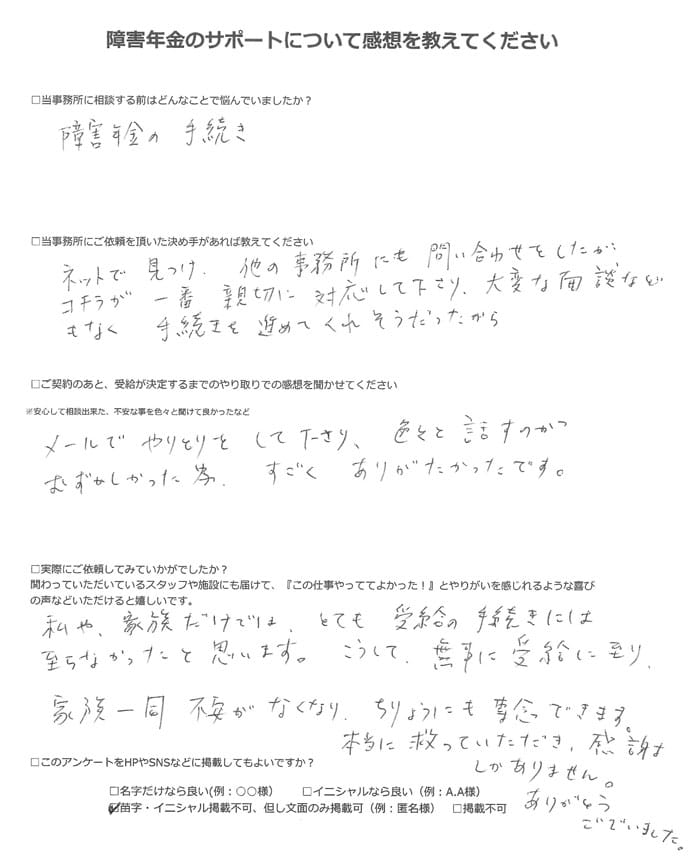 障害年金のサポートについて感想を教えてください
□当事務所に相談する前はどんなことで悩んでいましたか？
障害年金の 手続き
□当事務所にご依頼を頂いた決め手があれば教えてください
ネットで 見つけ、他の事務所にも 問い合わせをしたが、
コチラが 一番 親切に 対応して下さり、大変な面談など
もなく 手続きを 進めてくれそうだったから
□ご契約のあと、受給が決定するまでのやり取りでの感想を聞かせてください
※安心して相談出来た、不安な事を色々と聞けて良かったなど
メールで やりとりを して下さり、色々と 話すのが
むずかしかった為、すごく ありがたかったです。
□実際にご依頼してみていかがでしたか？
関わっていただいているスタッフや施設にも届けて、『この仕事やっててよかった！』とやりがいを感じれるような喜び
の声などいただけると嬉しいです。
私や、家族だけでは、とても 受給の 手続きには
至らなかったと 思います。こうして、無事に 受給に至り、
家族一同 不安が なくなり、ちりょうにも 専念できます。
本当に 救っていただき、感謝
しかありません。
ありがとう
ございました。
□このアンケートをHPやSNSなどに掲載してもよいですか？
□名字だけなら良い(例：○○様) □イニシャルなら良い（例：A.A様）
☑苗字・イニシャル掲載不可、但し文面のみ掲載可（例：匿名様） □掲載不可